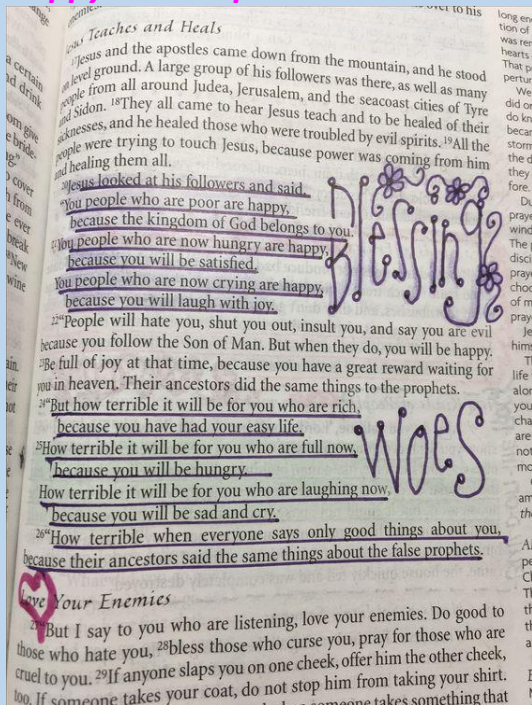 Teaches and Heals
¹⁷Jesus and the apostles came down from the mountain, and he stood
on level ground. A large group of his followers was there, as well as many
people from all around Judea, Jerusalem, and the seacoast cities of Tyre
and Sidon. ¹⁸They all came to hear Jesus teach and to be healed of their
sicknesses, and he healed those who were troubled by evil spirits. ¹⁹All the
people were trying to touch Jesus, because power was coming from him
and healing them all.
²⁰Jesus looked at his followers and said,
“You people who are poor are happy,
because the kingdom of God belongs to you.
²¹You people who are now hungry are happy,
because you will be satisfied.
You people who are now crying are happy,
because you will laugh with joy.
Blessing
²²“People will hate you, shut you out, insult you, and say you are evil
because you follow the Son of Man. But when they do, you will be happy.
²³Be full of joy at that time, because you have a great reward waiting for
you in heaven. Their ancestors did the same things to the prophets.
²⁴“But how terrible it will be for you who are rich,
because you have had your easy life.
²⁵How terrible it will be for you who are full now,
because you will be hungry.
How terrible it will be for you who are laughing now,
because you will be sad and cry.
Woes
²⁶“How terrible when everyone says only good things about you,
because their ancestors said the same things about the false prophets.
Love Your Enemies
²⁷“But I say to you who are listening, love your enemies. Do good to
those who hate you, ²⁸bless those who curse you, pray for those who are
cruel to you. ²⁹If anyone slaps you on one cheek, offer him the other cheek,
too. If someone takes your coat, do not stop him from taking your shirt.
someone takes something that